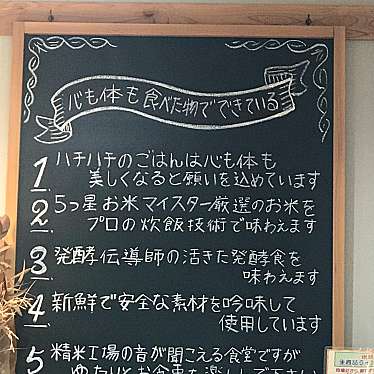 心も体も食べた物でできている
1 ハチハチのごはんは心も体も
美しくなると願いを込めています
2 5つ星お米マイスター厳選のお米を
プロの炊飯技術で味わえます
3 発酵伝導師の活きた発酵食を
味わえます
4 新鮮で安全な素材を吟味して
使用しています
5 精米工場の音が聞こえる食堂ですが
ゆったりとお食事を楽しんで下さい